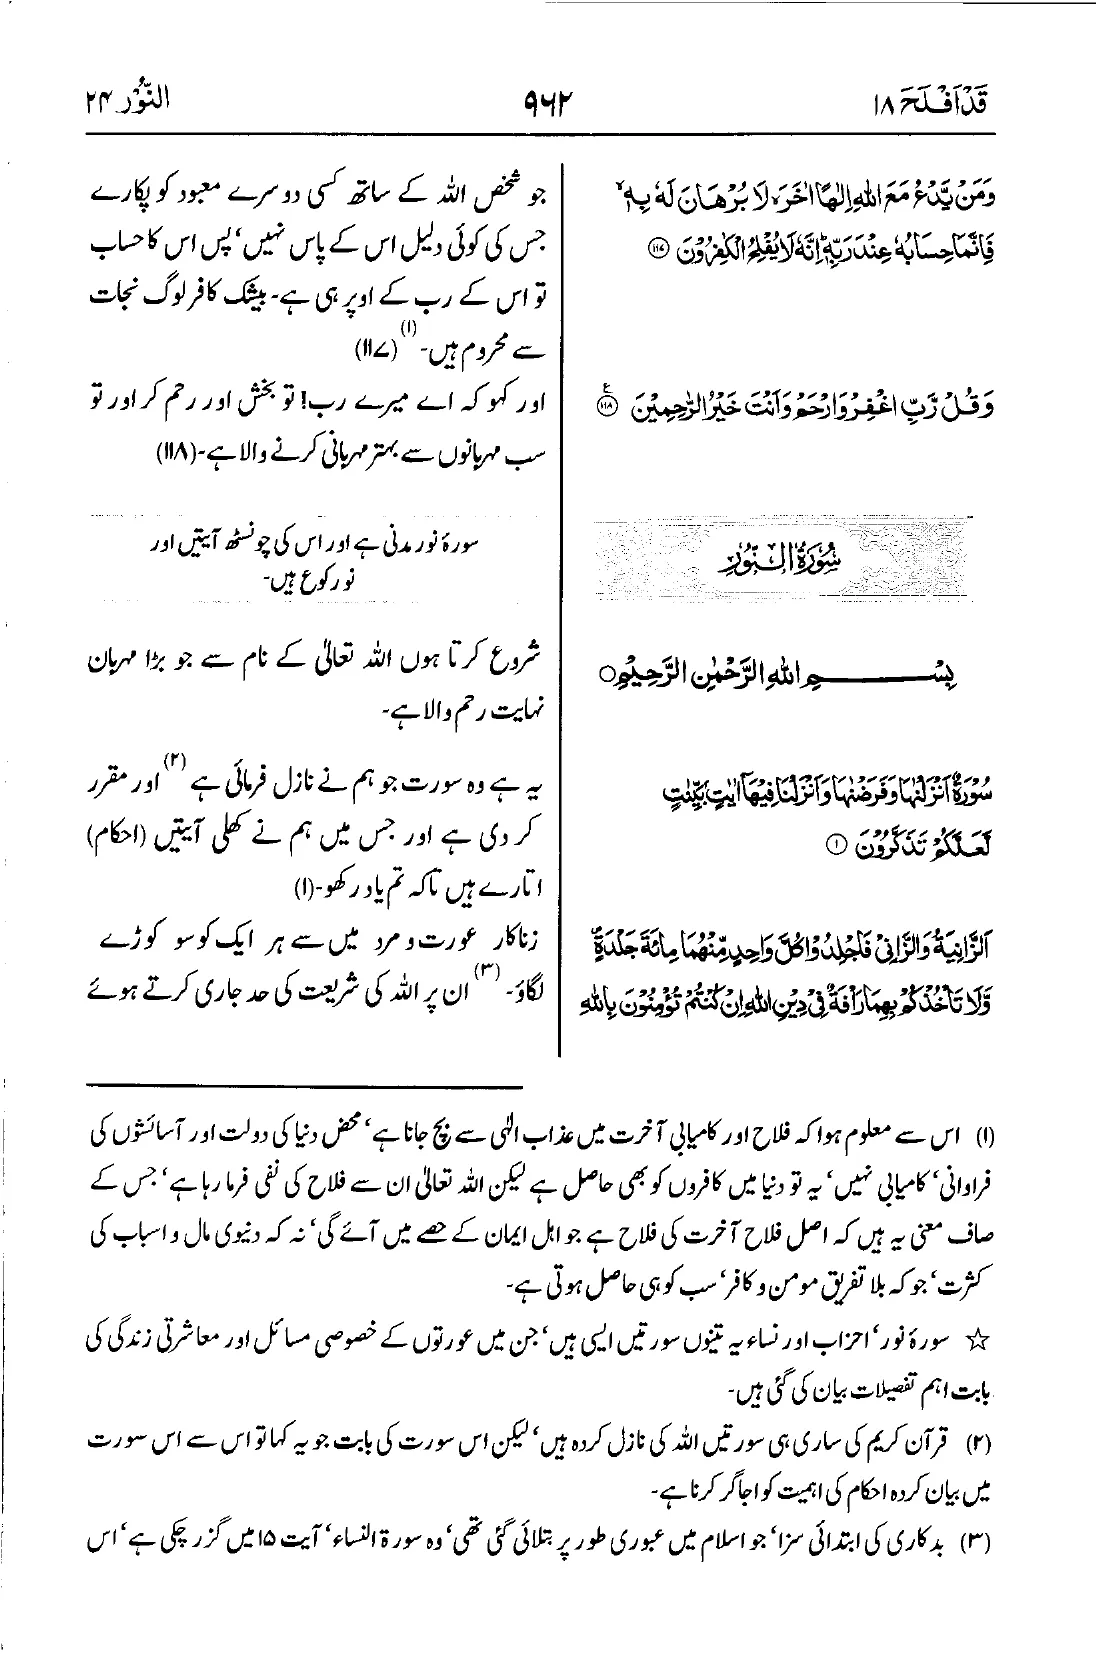 قَدْ اَفْلَحَ ۱۸
۹۶۲
النُّوْر ۲۴
وَمَنْ يَّدْعُ مَعَ اللّٰهِ اِلٰهًا اٰخَرَ ۙ لَا بُرْهَانَ لَهٗ بِهٖ ۙ
فَاِنَّمَا حِسَابُهٗ عِنْدَ رَبِّهٖ ۭ اِنَّهٗ لَا يُفْلِحُ الْكٰفِرُوْنَ ۝۱۱۷
وَقُلْ رَّبِّ اغْفِرْ وَارْحَمْ وَاَنْتَ خَيْرُ الرّٰحِمِيْنَ ۝۱۱۸ ع
سُوْرَةُ النُّوْرِ
بِسْمِ اللّٰهِ الرَّحْمٰنِ الرَّحِيْمِ ○
سُوْرَةٌ اَنْزَلْنٰهَا وَفَرَضْنٰهَا وَاَنْزَلْنَا فِيْهَآ اٰيٰتٍۢ بَيِّنٰتٍ
لَّعَلَّكُمْ تَذَكَّرُوْنَ ۝۱
اَلزَّانِيَةُ وَالزَّانِيْ فَاجْلِدُوْا كُلَّ وَاحِدٍ مِّنْهُمَا مِائَةَ جَلْدَةٍ ۠
وَّلَا تَاْخُذْكُمْ بِهِمَا رَاْفَةٌ فِيْ دِيْنِ اللّٰهِ اِنْ كُنْتُمْ تُؤْمِنُوْنَ بِاللّٰهِ
جو شخص اللہ کے ساتھ کسی دوسرے معبود کو پکارے
جس کی کوئی دلیل اس کے پاس نہیں، پس اس کا حساب
تو اس کے رب کے اوپر ہی ہے۔ بیشک کافر لوگ نجات
سے محروم ہیں۔ (۱) (۱۱۷)
اور کہو کہ اے میرے رب! تو بخش اور رحم کر اور تو
سب مہربانوں سے بہتر مہربانی کرنے والا ہے۔ (۱۱۸)
سورۂ نور مدنی ہے اور اس کی چونسٹھ آیتیں اور
نو رکوع ہیں۔
شروع کرتا ہوں اللہ تعالیٰ کے نام سے جو بڑا مہربان
نہایت رحم والا ہے۔
یہ ہے وہ سورت جو ہم نے نازل فرمائی ہے (۲) اور مقرر
کر دی ہے اور جس میں ہم نے کھلی آیتیں (احکام)
اتارے ہیں تاکہ تم یاد رکھو۔ (۱)
زناکار عورت و مرد میں سے ہر ایک کو سو کوڑے
لگاؤ۔ (۳) ان پر اللہ کی شریعت کی حد جاری کرتے ہوئے
(۱) اس سے معلوم ہوا کہ فلاح اور کامیابی آخرت میں عذاب الٰہی سے بچ جانا ہے، محض دنیا کی دولت اور آسائشوں کی
فراوانی، کامیابی نہیں، یہ تو دنیا میں کافروں کو بھی حاصل ہے لیکن اللہ تعالیٰ ان سے فلاح کی نفی فرما رہا ہے، جس کے
صاف معنی یہ ہیں کہ اصل فلاح آخرت کی فلاح ہے جو اہل ایمان کے حصے میں آئے گی، نہ کہ دنیوی مال و اسباب کی
کثرت، جو کہ بلا تفریق مومن و کافر، سب کو ہی حاصل ہوتی ہے۔
☆ سورۂ نور، احزاب اور نساء یہ تینوں سورتیں ایسی ہیں، جن میں عورتوں کے خصوصی مسائل اور معاشرتی زندگی کی
بابت اہم تفصیلات بیان کی گئی ہیں۔
(۲) قرآن کریم کی ساری ہی سورتیں اللہ کی نازل کردہ ہیں، لیکن اس سورت کی بابت جو یہ کہا تو اس سے اس سورت
میں بیان کردہ احکام کی اہمیت کو اجاگر کرنا ہے۔
(۳) بدکاری کی ابتدائی سزا، جو اسلام میں عبوری طور پر بتلائی گئی تھی، وہ سورۃ النساء، آیت ۱۵ میں گزر چکی ہے، اس